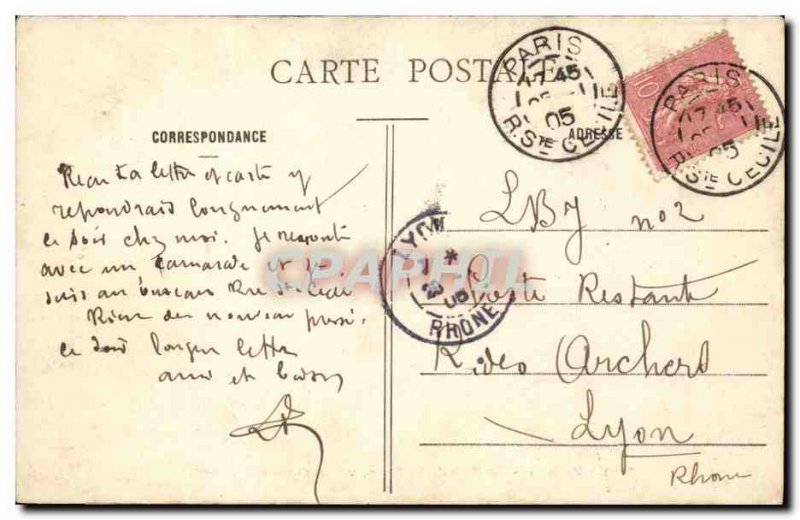 CARTE POSTALE
PARIS
17 45
05
R. STE CECILE
10
PARIS
17 45
05
R. STE CECILE
CORRESPONDANCE
ADRESSE
Recu ta lettre et carte y
repondrais longuement
ce soir chez moi. Je
avec un camarade et je
suis au bureau Rue Ste Cecile
Rien de nouveau
ce soir longue lettre
amis et baisers
LYON
*
05
RHONE
CPAPHIL
LBJ no 2
Poste Restante
R. des Archers
Lyon
Rhone